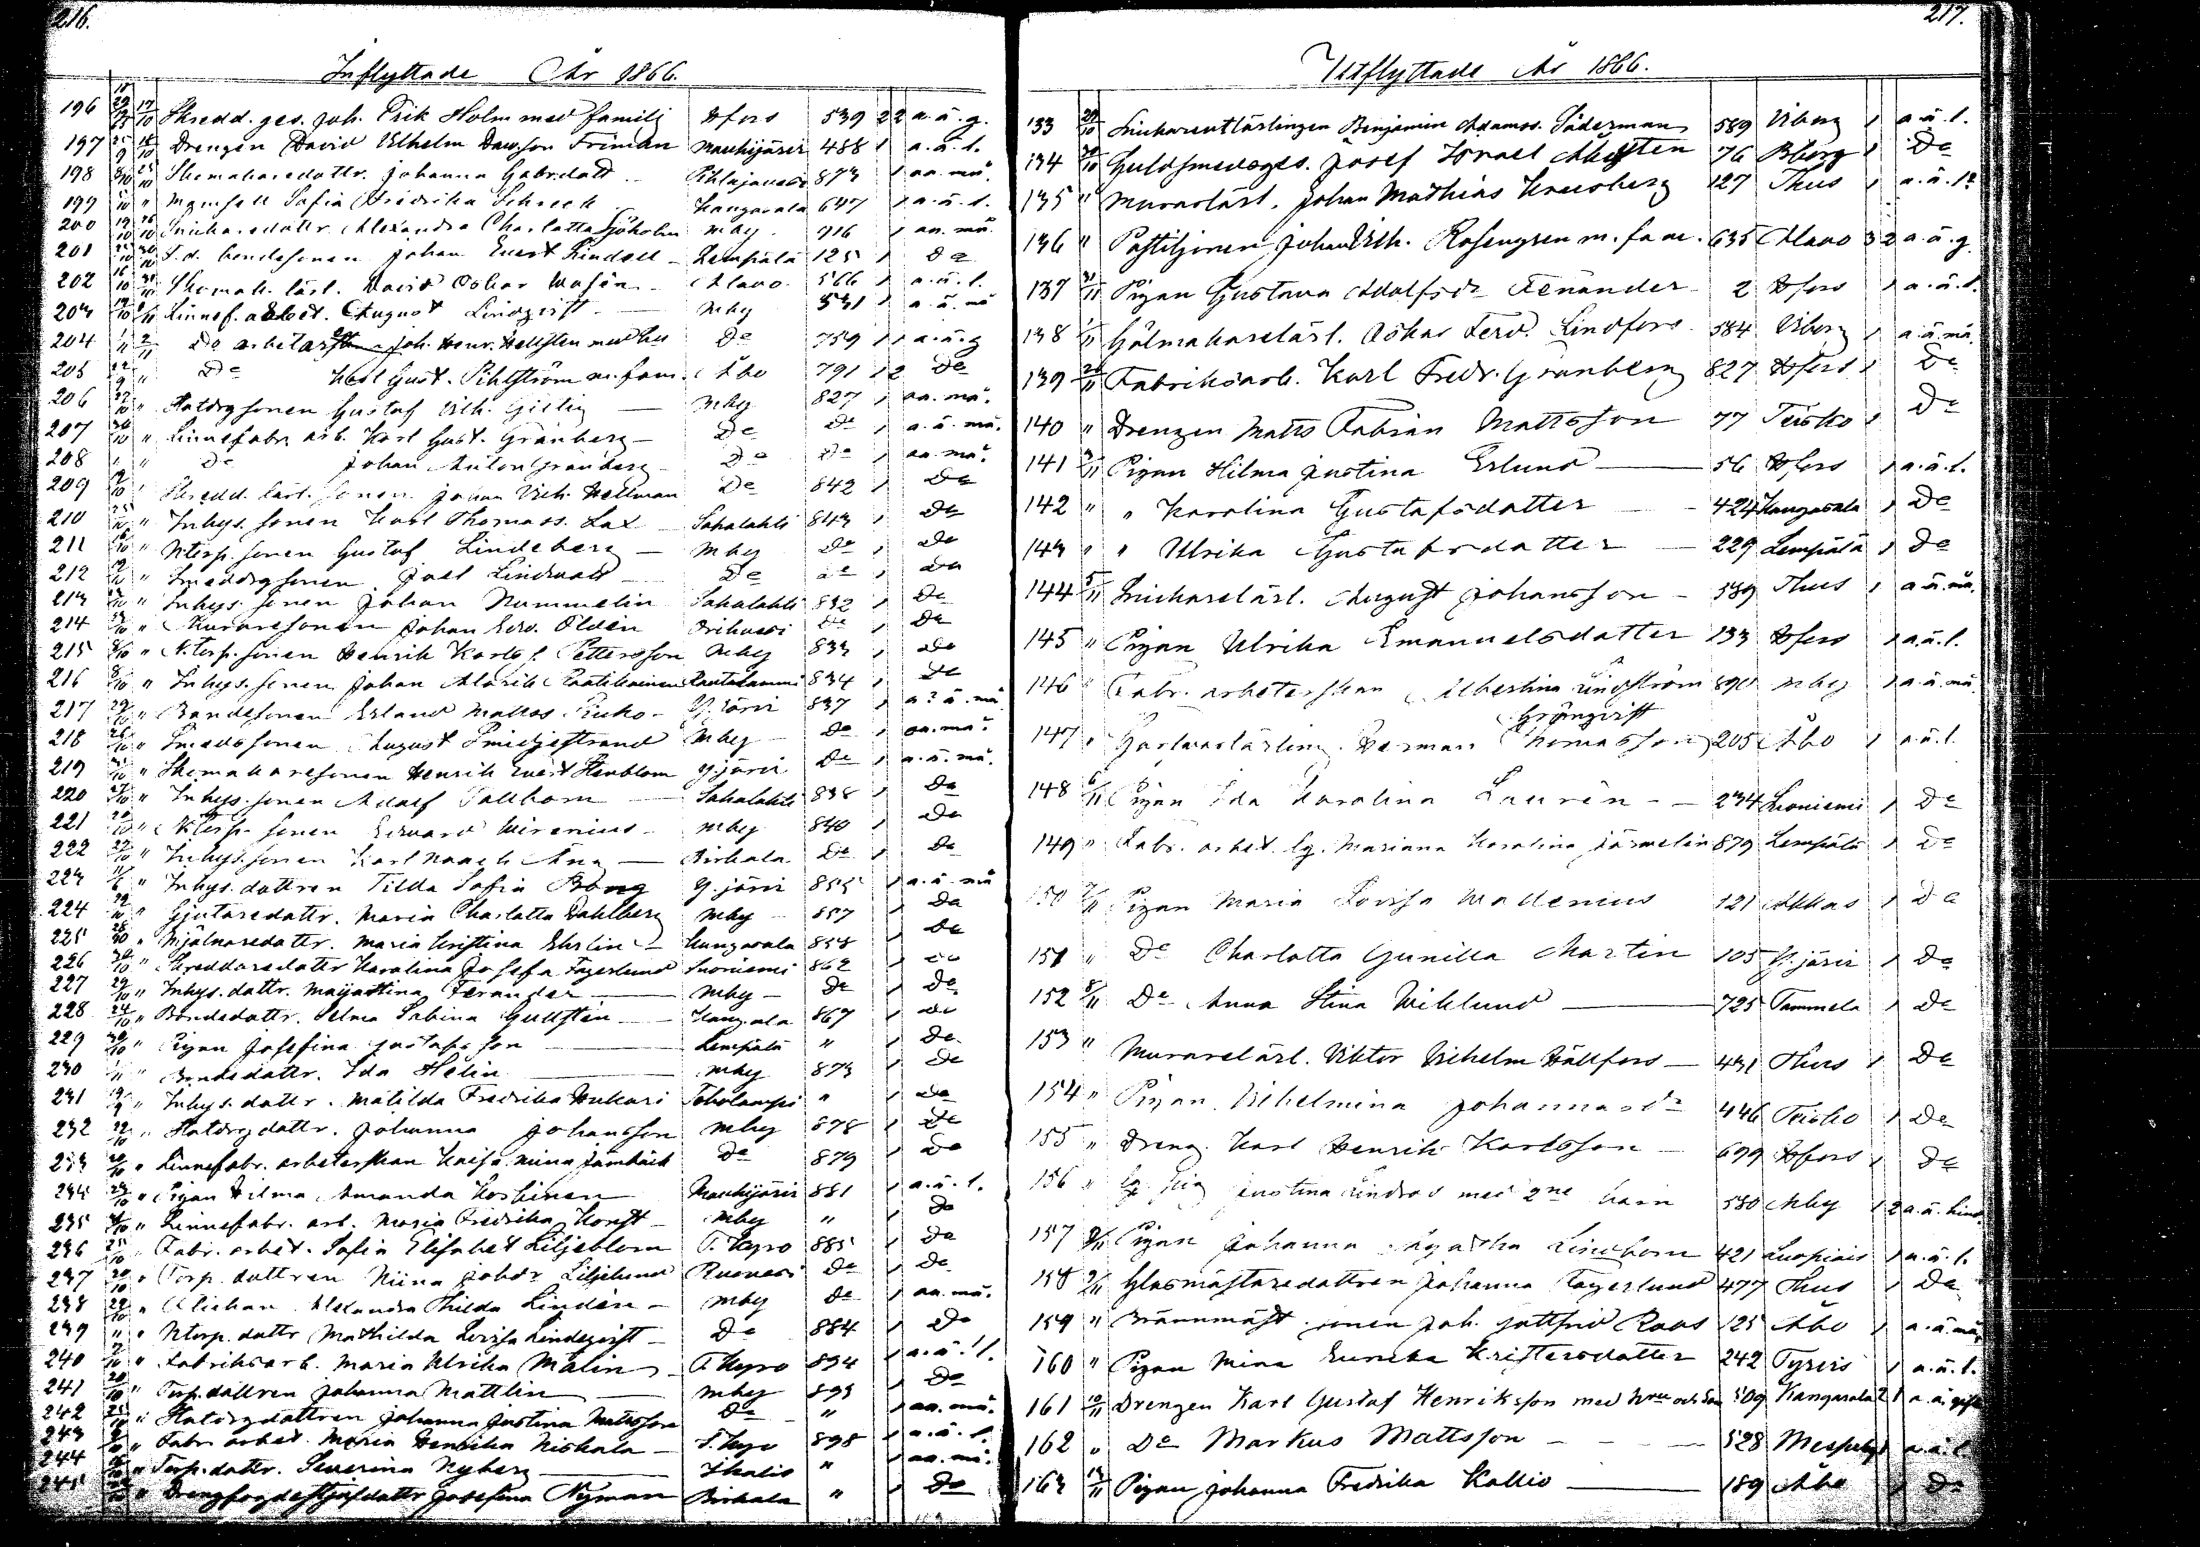 216.
Inflyttade År 1866.
196 17/10 Skredd. ges. Joh. Erik Holm med familj Hfors 539 2 2 a.ä.g.
197 25/9 18/10 Drengen David Vilhelm Davidson Friman Mauhijärvi 488 1 a.ä.l.
198 25/10 Skomakaredottr. Johanna Gabrsdotr Pihlajavesi 873 1 aa.mä.
199 " Mamsell Sofia Fredrika Schreck Kangasala 647 1 a.ä.l.
200 19/10 26/10 Snickaredottr. Alexandra Charlotta Sjöholm Mky. 716 1 aa.mä.
201 S.d. bondesonen Johan Evert Lindell Lempälä 125 1 De
202 16/10 Skomak. lärl. David Oskar Wasén Ulavo 566 1 a.ä.l.
203 Linnef. arbet. August Lindqvist Mky 531 1 a.ä.mä
204 1/11 2/11 De arbetar Joh. Henr. Hellsten med hu De 759 1 1 a.ä.g
205 " De Karl Gust. Pihlström m. fam. Åbo 791 1 2 De
206 27/10 " Hatörg sonen Gustaf Vilh. Gillig Mky 827 1 aa.mä.
207 30/10 " Linnefabr. arb. Karl Gust. Granberg De De 1 a.ä.mä.
208 " De Johan Anton Granberg De De 1 aa.mä.
209 " Skredd. lärl. sonen Johan Vilh. Hellman De 842 1 De
210 25/10 " Inhys. sonen Karl Thomass. Lax Sahalahti 843 1 De
211 16/10 " Ntorp. sonen Gustaf Lindeberg Mky De 1 De
212 19/10 " Smeddrg sonen Joel Lindwall De De 1 De
213 " Inhys. sonen Johan Nummelin Sahalahti 832 1 De
214 " Muraresonen Johan Edv. Oldén Orihvesi De 1 De
215 " Ntorp. sonen Henrik Karls s. Pettersson Mky 833 1 De
216 8/10 " Inhys. sonen Johan Alarik Raatikainen Rautalammi 834 1 De
217 29/10 " Bondesonen Erland Matts. Ruko Y.järvi 837 1 a?ä.mä
218 26/10 " Smedssonen August Smidjestrand Mky De 1 aa.mä.
219 " Skomakaresonen Henrik Evert Stenblom Y.järvi De 1 a.ä.mä.
220 27/10 " Inhys. sonen Adolf Pallbom Sahalahti 838 1 De
221 " Ntorp. sonen Edvard Wirenius Mky 840 1 De
222 27/10 " Inhys. sonen Karl Noach Äng Birkala De 1 De
223 " Inhys. dottren Tilda Sofia Bång Y.järvi 855 1 a.ä.mä
224 " Gjutaredottr. Maria Charlotta Dahlberg Mky 857 1 De
225 " Mjölnaredottr. Maria Kristina Ehrlin Kangasala 858 1 De
226 " Skreddaredottr Karolina Josefa Fagerlund Suoniemi 862 1 De
227 29/10 " Inhys. dottr. Majastina Feronder Mky De 1 De
228 24/10 " Bondedottr. Selma Sabina Gullstén Kang.ala 867 1 De
229 30/10 " Pigan Josefina Gustafsson Lempälä " 1 De
230 1/11 " Bondedottr. Ida Helin Mky 873 1 De
231 " Inhys. dottr. Matilda Fredrika Hukari Toholampi " 1 De
232 " Hatörgdottr. Johanna Johansson Mky 878 1 De
233 " Linnefabr. arbeterskan Kaisa Niina Jämbäck De 879 1 De
234 " Pigan Hilma Amanda Koskinen Mauhijärvi 881 1 a.ä.l.
235 " Linnefabr. arb. Maria Fredrika Konst Mky " 1 De
236 25/10 " Fabr. arbet. Sofia Elisabet Liljeblom T. Kyro 885 1 De
237 " Torp. dottren Niina Johdr Liljelund Ruovesi De 1 De
238 " Alickan Alexandra Thilda Lindén Mky De 1 aa.mä.
239 " Ntorp. dottr Mathilda Lovisa Lindqvist De 884 1 De
240 " Fabriksarb. Maria Ulrika Malin T. Kyro 894 1 a.ä.l.
241 20/10 " Torp. dottren Johanna Mattlin Mky 895 1 De
242 " Hatörgdottren Johanna Justina Mattsson De " 1 aa.mä.
243 " Fabr. arbet. Maria Henrika Niskala T. Kyro 898 1 a.ä.l.
244 " Torp. dottr. Severina Nyberg Ikalis " 1 aa.mä.
245 " Drengfogde dottr Josefina Nyman Birkala " 1 De
217.
Utflyttade År 1866.
133 29/10 Snickareutlärlingen Benjamin Adamss. Söderman 589 Viborg 1 a.ä.l.
134 Guldsmedsges. Josef Israel 76 Bborg 1 De
135 " Murarlärl. Johan Mathias Kreusberg 127 Thus 1 a.ä.l?
136 " Postiljonen Johan Vilh. Rosengren m. fam. 635 Ulavo 3 2 a.ä.g.
137 31/11 Pigan Gustava Adolfsdr Fenander 2 Hfors 1 a.ä.l.
138 1/11 Gälmakarelärl. Oskar Ferd. Lindfors 584 Viborg 1 a.ä.mä.
139 Fabriksarb. Karl Fredr. Granberg 827 Hfors 1 De
140 " Drengen Matts Fabian Mattsson 77 Teisko 1 De
141 Pigan Hilma Justina Erlund 56 Hfors 1 a.ä.l.
142 " " Karolina Gustafsdotter 424 Kangasala 1 De
143 " " Ulrika Gustafsdotter 229 Lempälä 1 De
144 5/11 Snickarelärl. August Johansson 589 Thus 1 a.ä.mä.
145 " Pigan Ulrika Emanuelsdotter 133 Hfors 1 a.ä.l.
146 " Fabr. arbeterskan Albertina Lindström 890 Mky 1 a.ä.mä.
Granqvist
147 " Garfvarlärling. Herman Thomasson 205 Åbo 1 a.ä.l.
148 6/11 Pigan Ida Karolina Laurén 234 Suoniemi 1 De
149 " Fabr. arbet. Mariana Karolina Järmelin 879 Lempälä 1 De
150 7/11 Pigan Maria Lovisa Wallenius 121 Akkas 1 De
151 " De Charlotta Gunilla Martin 105 Y.järvi 1 De
152 8/11 De Anna Stina Wiklund 725 Tammela 1 De
153 " Murarelärl. Viktor Vilhelm Hällfors 431 Thus 1 De
154 " Pigan Vilhelmina Johannasdr 446 Teisko 1 De
155 " Dreng. Karl Henrik Karlsson 699 Hfors 1 De
156 " Justina Lindros med 2ne barn 580 Mky 1 2 a.ä.
157 9/11 Pigan Johanna Agatha Lindbom 421 Luopiois 1 a.ä.l.
158 9/11 Glasmästaredottren Johanna Fagerlund 477 Thus 1 De
159 " Brännmäst. sonen Joh. Gottfrid Roos 125 Åbo 1 a.ä.mä.
160 " Pigan Mina Eurika Kristersdotter 242 Tyrvis 1 a.ä.l.
161 10/11 Drengen Karl Gustaf Henriksson med hru och son 509 Kangasala 2 1 a.ä.gift
162 " De Markus Mattsson 528 Messuby 1 a.ä.l.
163 Pigan Johanna Fredrika Kallio 189 Åbo 1 De